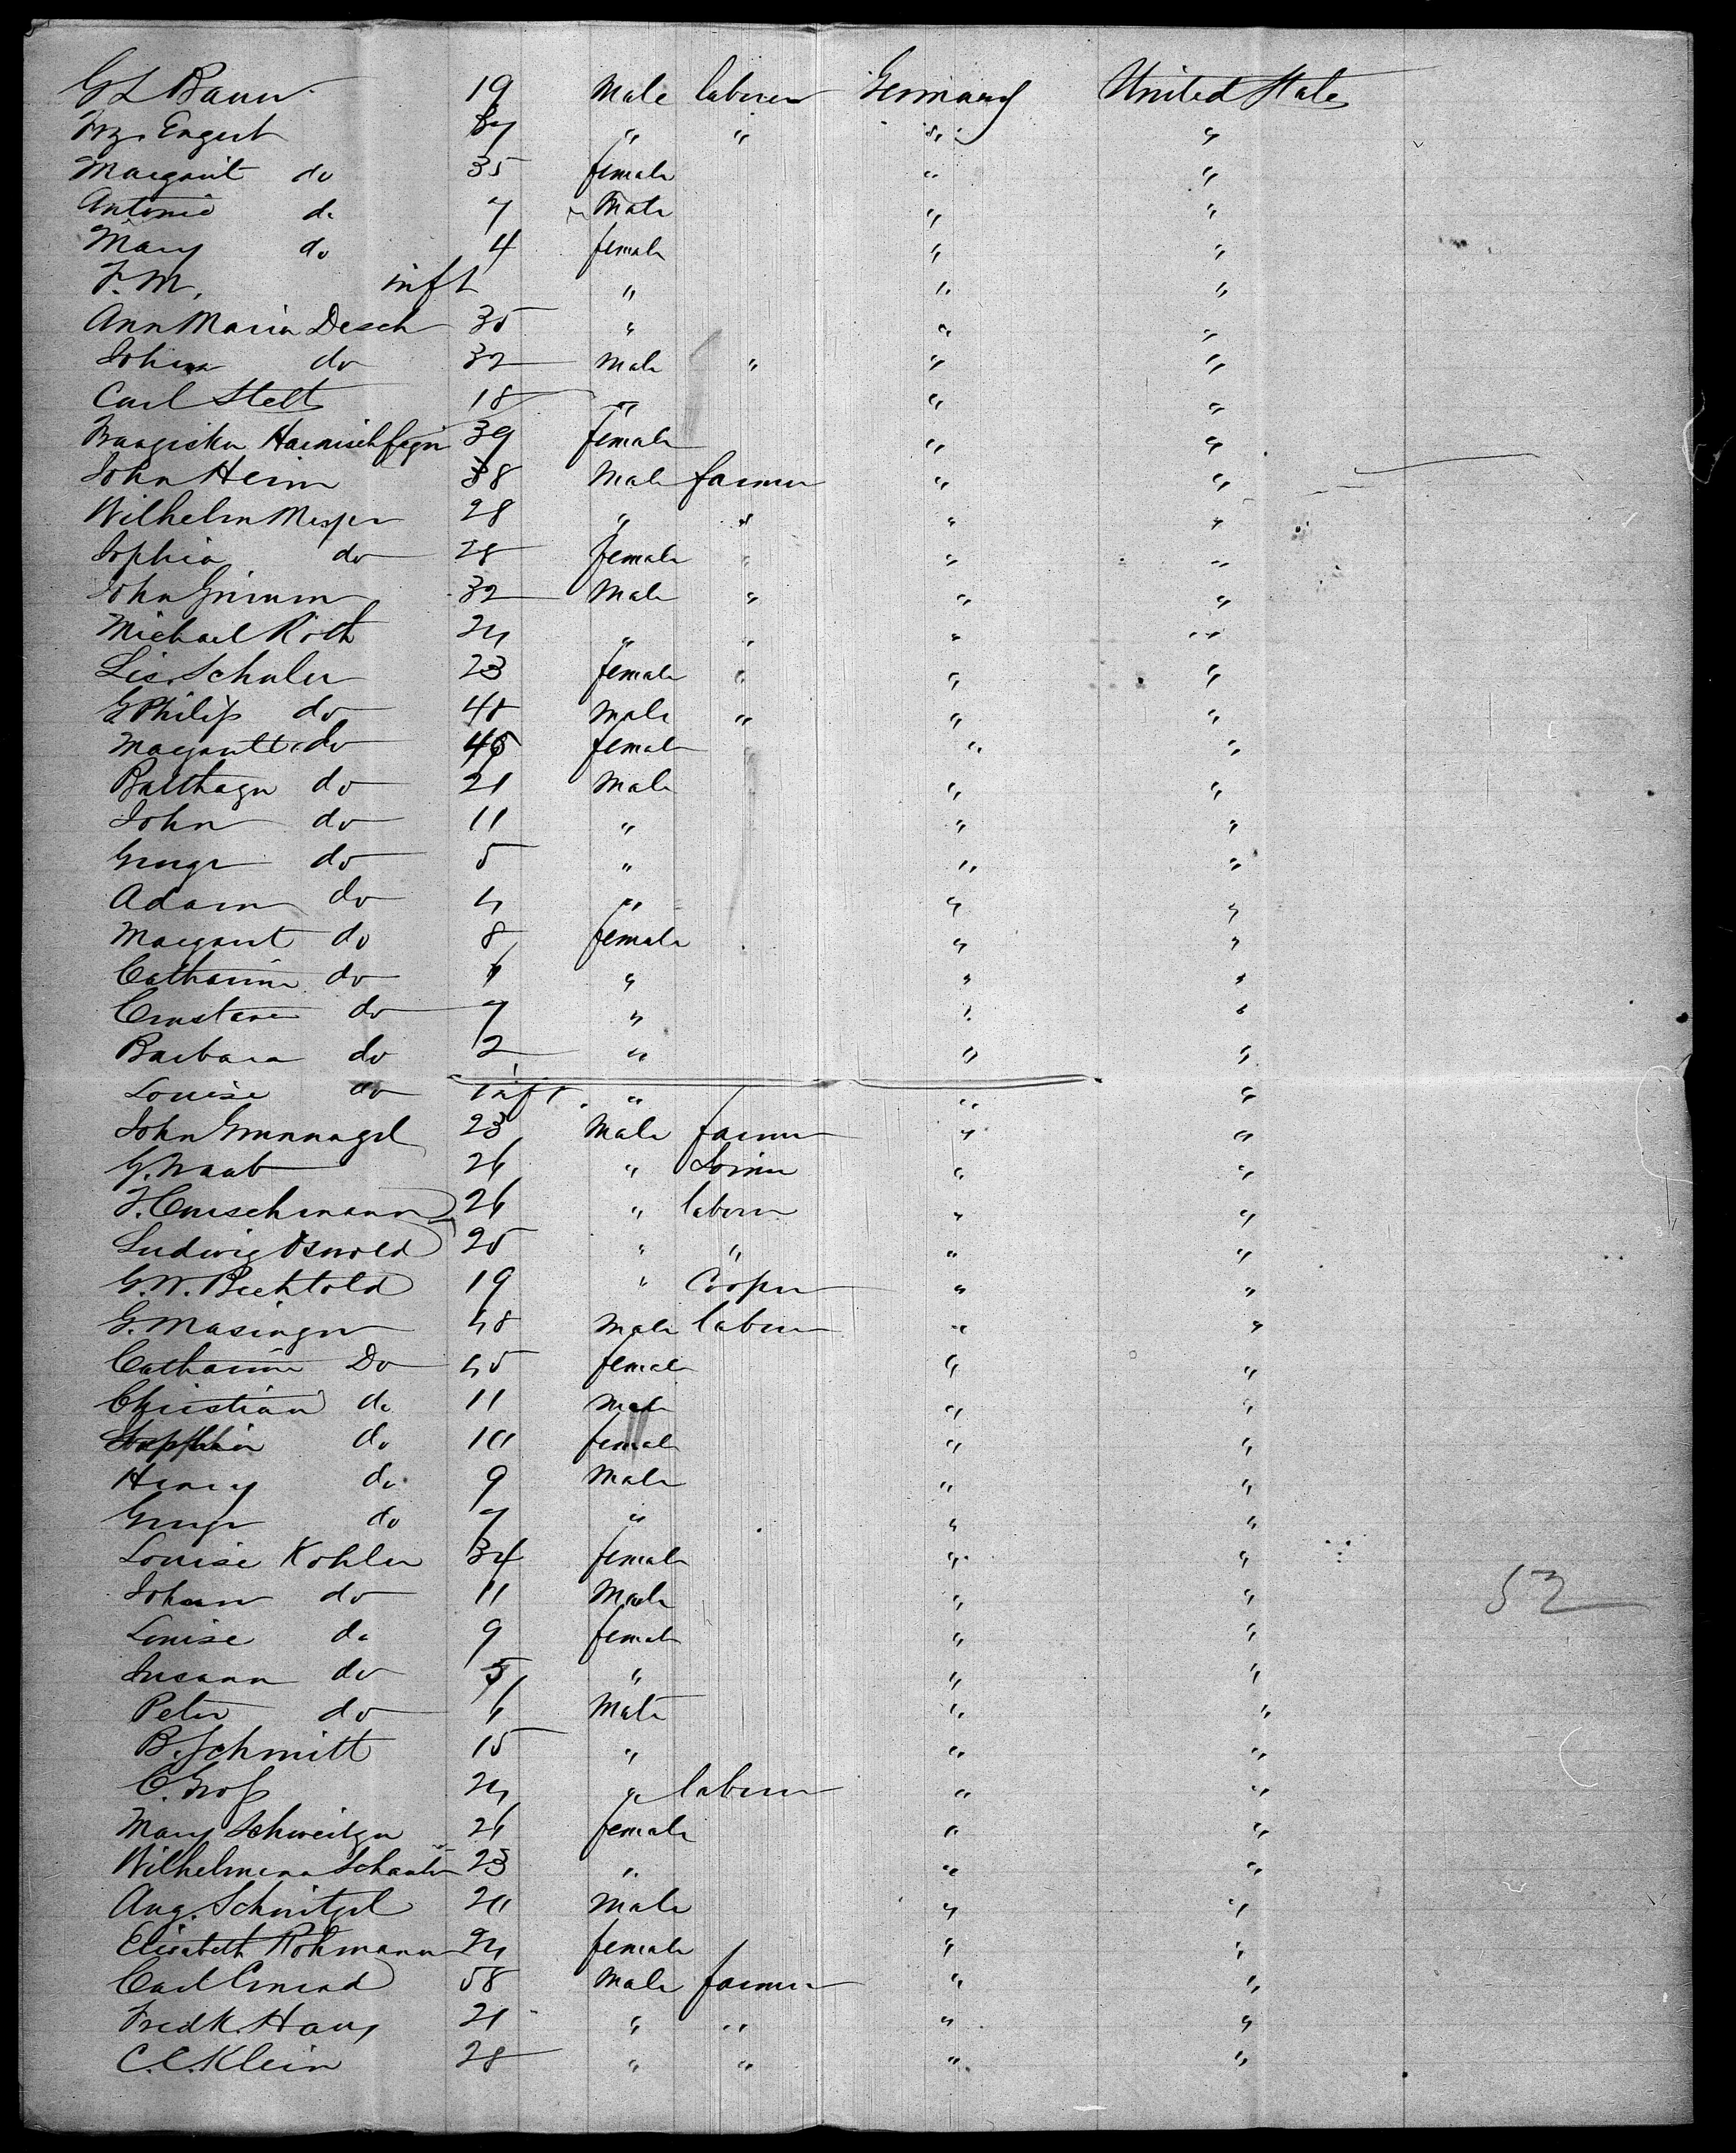 G L Baur 19 Male laborer Germany United States
Frz. Engert 37 " " " "
Margarit do 35 female " "
Antonio do 7 Male " "
Mary do 4 female " "
F. M. inft " " "
Ann Maria Desch 35 " " "
Johan do 32 male " " "
Carl Stelt 18 " " "
Haenischfeger 39 female " "
John Heim 38 Male farmer " "
Wilhelm 28 " " " "
Sophia do 28 female " " "
John Grimm 32 Male " " "
Michael Roth 24 " " " "
Lis. Schuler 23 female " " "
G Philip do 48 male " " "
Margarett do 45 female " " "
Balthazer do 21 male " "
John do 11 " " "
George do 5 " " "
Adam do 4 " " "
Margaret do 8 female " "
Catharine do " " "
do 7 " " "
Barbara do 2 " " "
Louise do inft " " "
John Grunnagel 23 Male farmer " "
G. Waab 26 " " "
26 " laborer " "
Ludwig Oswold 25 " " " "
G. W. Bechtold 19 " Cooper " "
G. Masinger 48 male laborer " "
Catharine Do 45 female " "
Christian do 11 male " "
Sophia do 10 female " "
Henry do 9 male " "
George do 7 " " "
Louise Kohler 34 female " "
Johann do 11 Male " " 52
Louise do 9 female " "
Susann do 5 " " "
Peter do Male " "
B. Schmitt 15 " " "
C. Groß 24 " laborer " "
Mary Schweitzer 26 female " "
Wilhelmena 23 " " "
Aug. Schnitzel 20 male " "
Elisabeth Rohmann 24 female " "
Carl Conrad 58 male farmer " "
Fredk. Haug 21 " " " "
C. C. Klein 28 " " " "